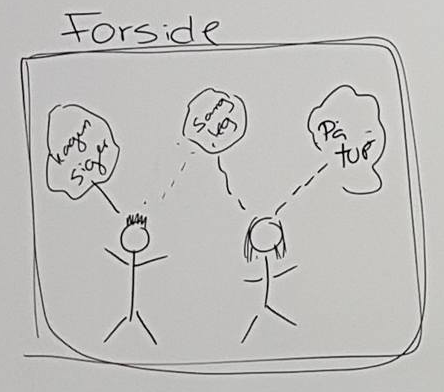 Forside
kagen
siger
Sang
leg
På
tur